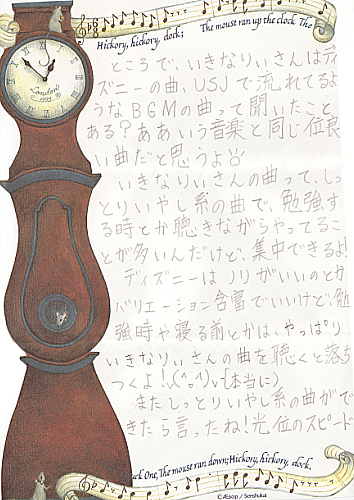 Hickory, hickory, dock; The mouse ran up the clock. The
ところで、いきなりぃさんはディ
ズニーの曲、USJで流れてるよ
うなBGMの曲って聞いたこと
ある?ああいう音楽と同じ位良
い曲だと思うよ
いきなりぃさんの曲って、しっ
とりいやし系の曲で、勉強す
る時とか聴きながらやってるこ
とが多いんだけど、集中できるよ!
ディズニーはノリがいいのとか
バリエーション含富でいいけど、勉
強時や寝る前とかは、やっぱり
いきなりぃさんの曲を聴くと落ち
つくよ!(^o^)v(本当に)
またしっとりいやし系の曲がで
きたら言ってね!光位のスピード
London
©Æsop / Senshukai
uck One, The mouse ran down; Hickory, hickory, clock.